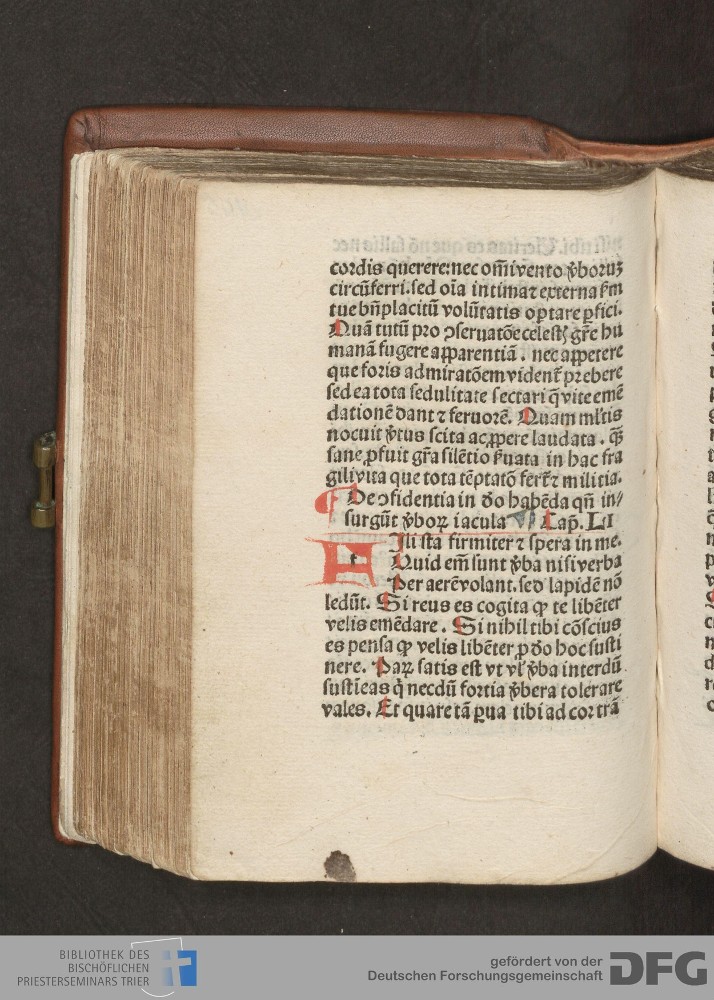 cordis querere: nec om̄i vento v̓boruꝫ
circūferri. sed oīa intima ⁊ externa ẜm
tue bn̄placitū volūtatis optare ꝑfici.
Quā tutū pro ↄseruatōe celestꝭ gr̄e hu
manā fugere apparentiā. nec appetere
que foris admiratōem vident̄ prebere
sed ea tota sedulitate sectari q̄ vite emē
dationē dant ⁊ feruorē. Quam ml̓tis
nocuit v̓tus scita ac ꝓpere laudata. qꝫ̄
sane ꝓfuit gr̄a silētio ẜuata in hac fra
gili vita que tota tēptatō fert̄ ⁊ militia.
De ↄfidentia in do habēda qn̄ in/
surgūt v̓boꝝ iacula Cap. LI
Fili sta firmiter ⁊ spera in me.
Quid em̄ sunt v̓ba nisi verba
Per aerē volant. sed lapidē nō
ledūt. Si reus es cogita ꝙ te libēter
velis emēdare. Si nihil tibi cōscius
es pensa ꝙ velis libēter ꝓ do hoc susti
nere. Paꝝ satis est vt vl̓ v̓ba interdū
sustīeas q̇ necdū fortia v̓bera tolerare
vales. Et quare tā ꝑua tibi ad cor trā
BIBLIOTHEK DES
BISCHÖFLICHEN
PRIESTERSEMINARS TRIER
gefördert von der
Deutschen Forschungsgemeinschaft
DFG